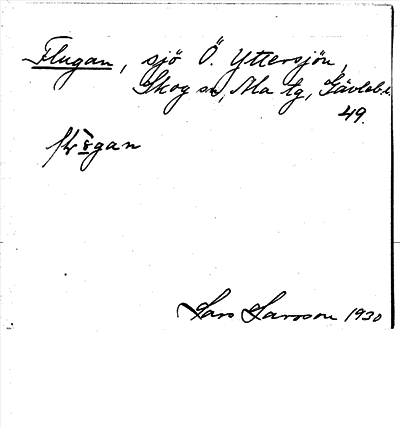 Flugan, sjö Ö. Yttersjön,
Skog sn, Ala tg, Gävleb. l.
49.
gan
Lars Larsson 1930